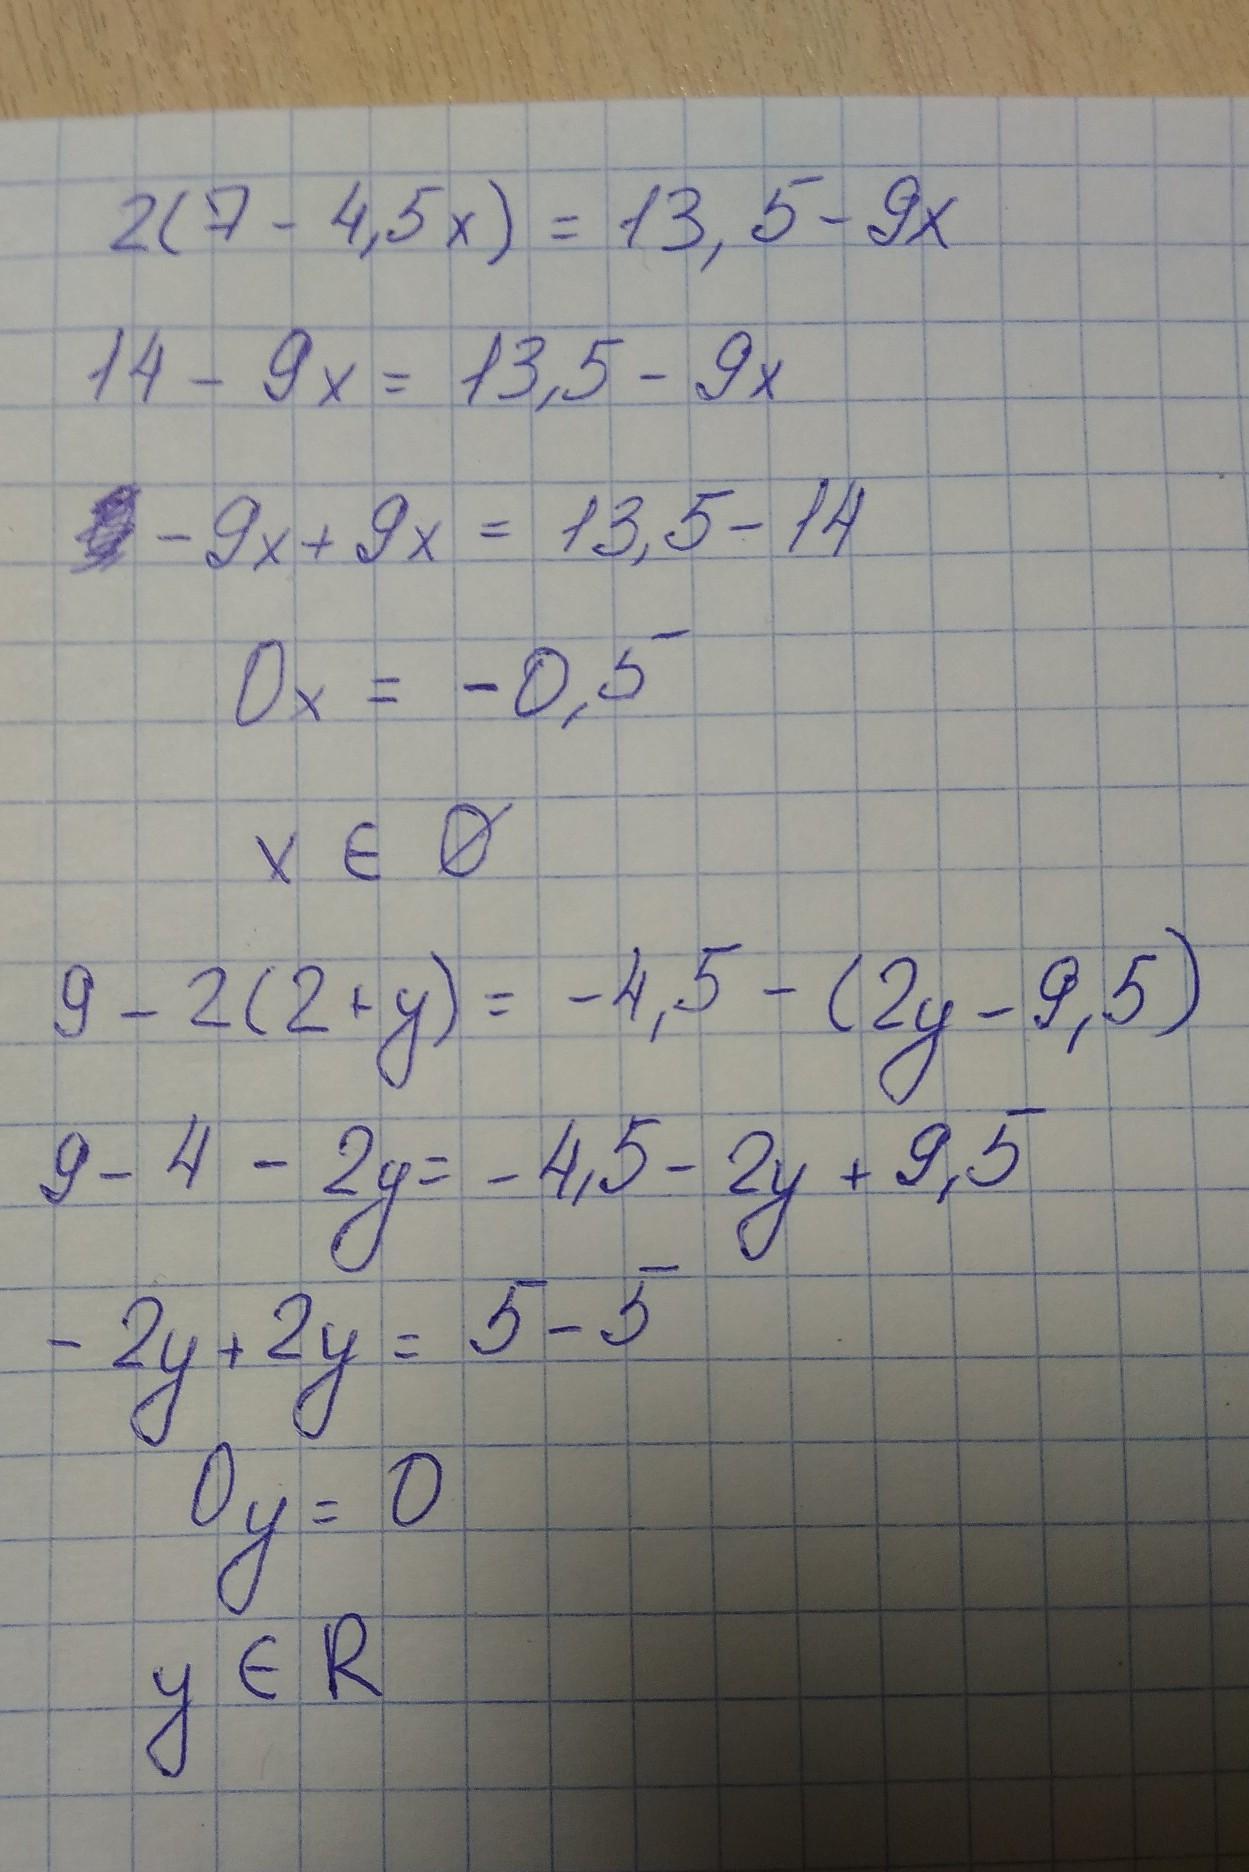 2(7 - 4,5x) = 13,5 - 9x
14 - 9x = 13,5 - 9x
- 9x + 9x = 13,5 - 14
0x = -0,5
x ∈ Ø
9 - 2(2 + y) = -4,5 - (2y - 9,5)
9 - 4 - 2y = -4,5 - 2y + 9,5
- 2y + 2y = 5 - 5
0y = 0
y ∈ R